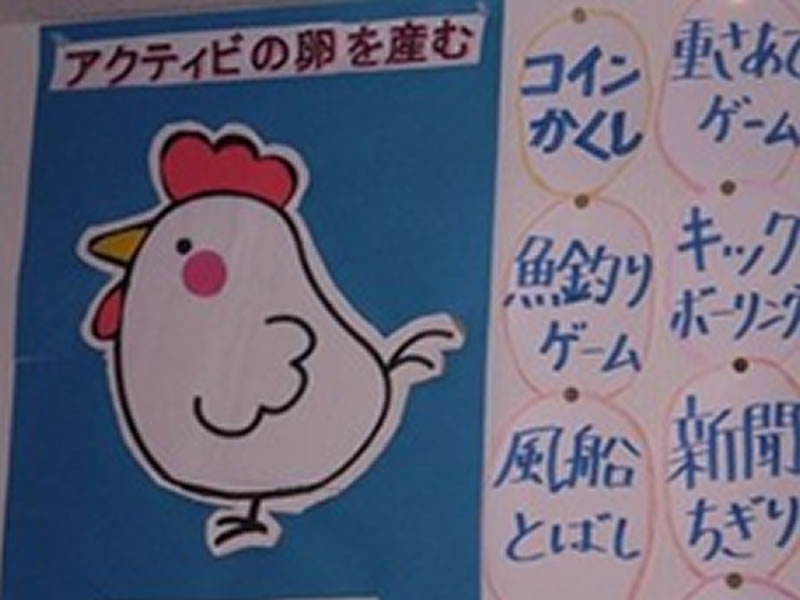 アクティビの卵を産む
コイン
かくし
重さあて
ゲーム
魚釣り
ゲーム
キック
ボーリング
風船
とばし
新聞
ちぎり